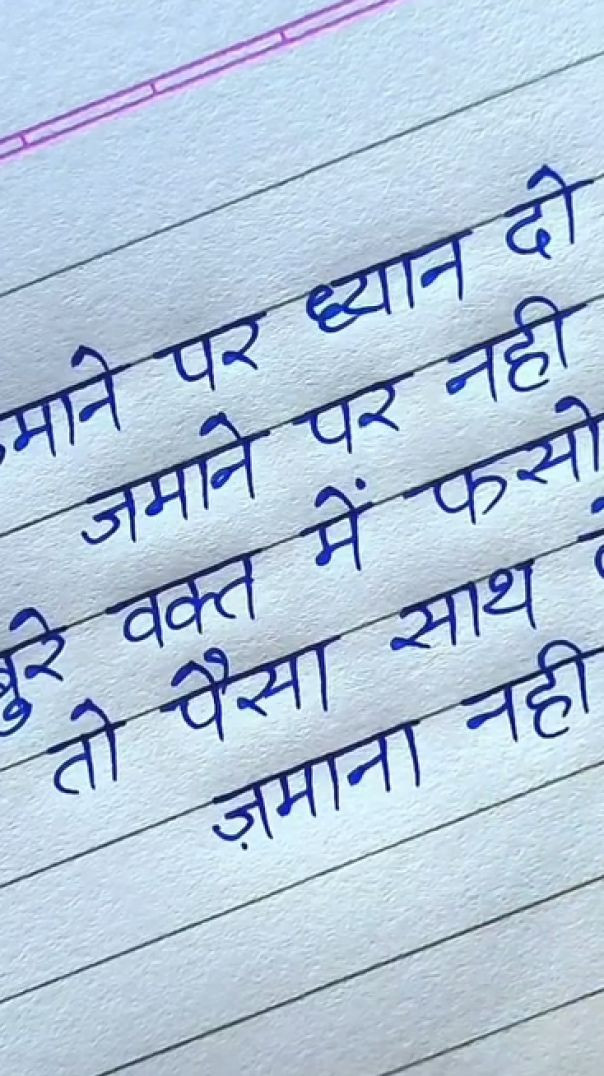 पर ध्यान दो
जमाने पर नही
बुरे वक्त में
तो पैसा साथ
ज़माना नही